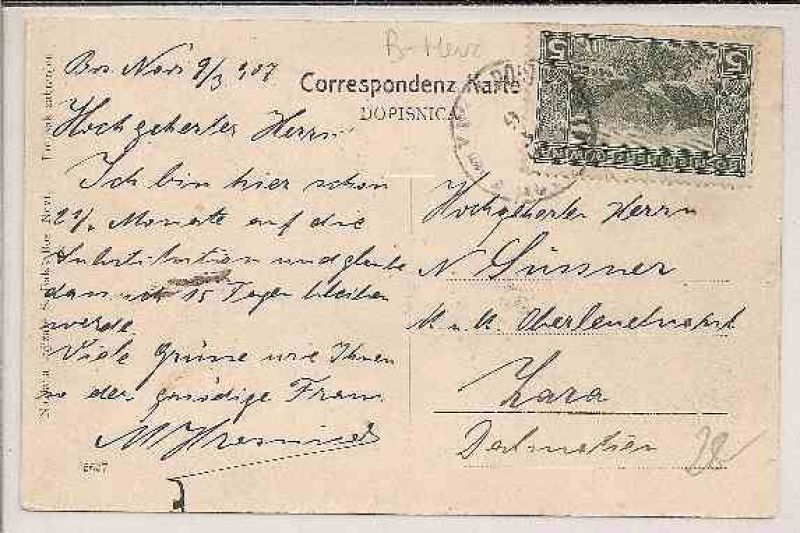 Bos Novi 9/3 907
Correspondenz Karte
DOPISNICA
Hochgeherter Herrn
Ich bin hier schon
2 1/2 Monate auf die
Substitution und glaube
dass noch 15 Tagen bleiben
werde.
Viele Grüsse wie Ihnen
so der gnädige Frau
Hochgeherter Herrn
N. Süssner
K. u. K. Oberleutnant
Zara
Dalmatien
5
5